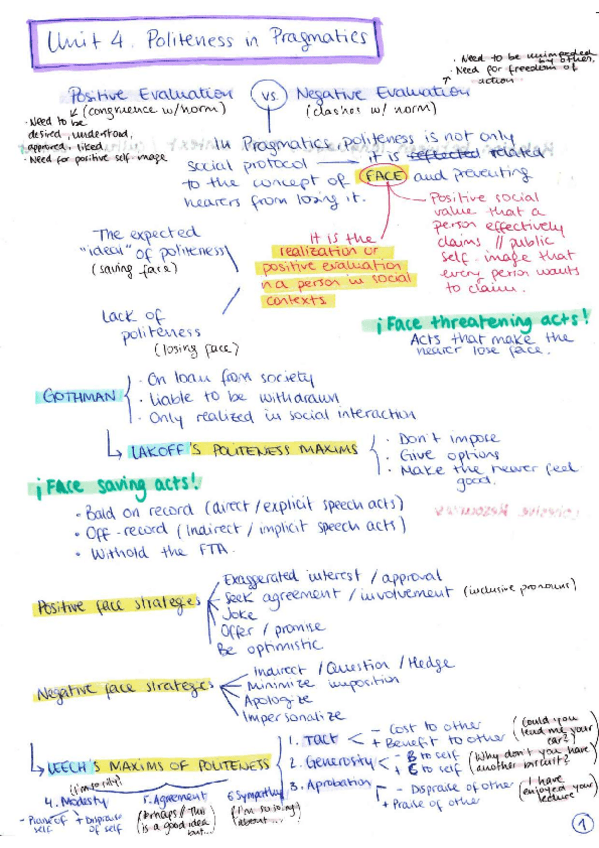 Unit 4. Politeness in Pragmatics
• Need to be unimpeded by other.
• Need for freedom of action
Positive Evaluation vs. Negative Evaluation
(congruence w/norm) (clashes w/ norm)
• Need to be
desired, understood,
approved, liked
• Need for positive self-image
In Pragmatics, politeness is not only
social protocol → it is reflected related
to the concept of FACE and preventing
hearers from losing it.
Positive social
value that a
person effectively
claims // public
self-image that
every person wants
to claim.
The expected
"ideal" of politeness
(saving face)
It is the
realization or
positive evaluation
in a person in social
contexts
Lack of
politeness
(losing face)
¡Face threatening acts!
Acts that make the
hearer lose face.
GOTHMAN
• On loan from society
• Liable to be withdrawn
• Only realized in social interaction
LAKOFF'S POLITENESS MAXIMS
• Don't impose
• Give options
• Make the hearer feel
good.
¡Face saving acts!
• Bald on record (direct / explicit speech acts)
• Off-record (Indirect / implicit speech acts)
• Withold the FTA.
Positive face strategies
Exaggerated interest / approval
Seek agreement / involvement (inclusive pronouns)
Joke
Offer / promise
Be optimistic
Negative face strategies
Indirect / Question / Hedge
Minimize imposition
Apologize
Impersonalize
LEECH'S MAXIMS OF POLITENESS
1. Tact < - Cost to other
+ Benefit to other
(Could you
lend me your
car?)
2. Generosity < - B to self
+ C to self
(Why don't you have
another biscuit?)
3. Aprobation - Dispraise of other
+ Praise of other
(I have
enjoyed your
lecture)
(I'm so silly!)
4. Modesty 5. Agreement 6. Sympathy
- Praise of self + Dispraise of self
(perhaps // This
is a good idea
but...)
(I'm so sorry
about...)
1